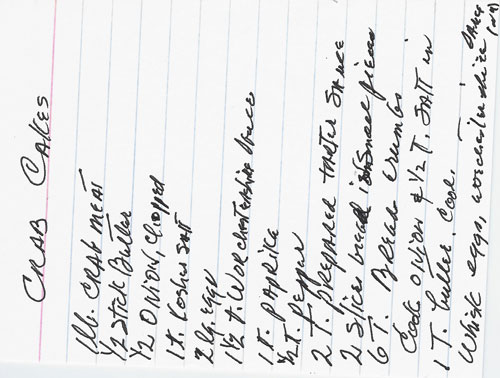 CRAB CAKES
1lb. CRAB MEAT
1/2 STICK BUTTER
1/2 ONION, Chopped
1 t. Kosher SAlt
2 lg. eggs
1 1/2 t. WORCHESTERSHIRE SAUCE
1 t. PAPRIKA
1/2 t. Pepper
2 T. PREPARED TARTER SAUCE
2 Slice bread in Small pieces
6 T. BREAD CRUMBS
Cook ONION & 1/2 t. SAlT in
1 T. butter. Cool.
Whisk eggs, worchestershire SAUCE